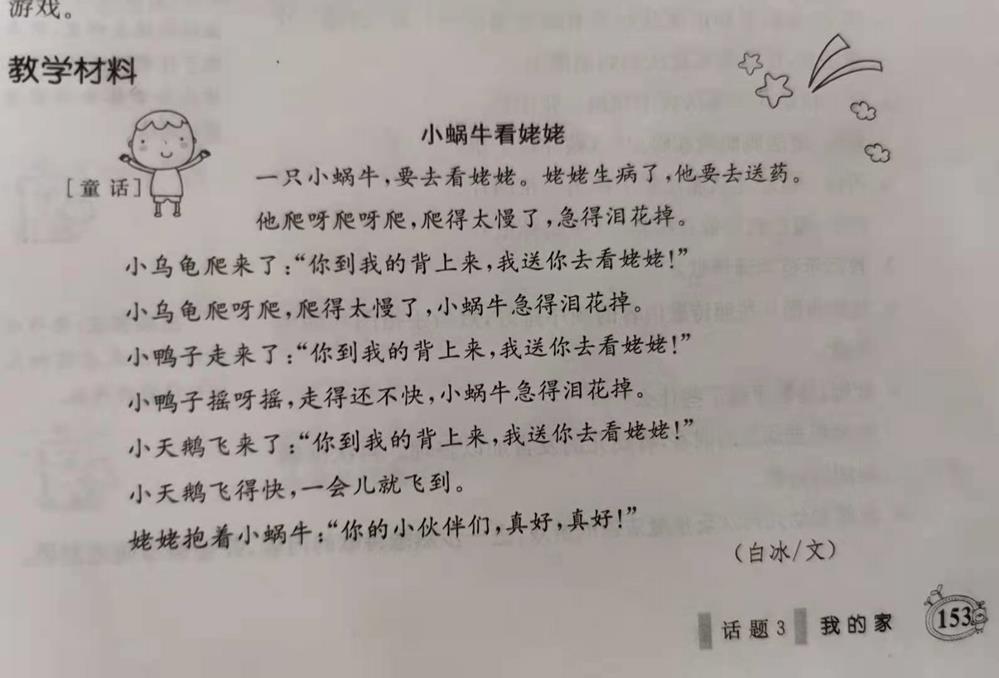 游戏。
教学材料
小蜗牛看姥姥
[童话]
一只小蜗牛,要去看姥姥。姥姥生病了,他要去送药。
他爬呀爬呀爬,爬得太慢了,急得泪花掉。
小乌龟爬来了:“你到我的背上来,我送你去看姥姥!”
小乌龟爬呀爬,爬得太慢了,小蜗牛急得泪花掉。
小鸭子走来了:“你到我的背上来,我送你去看姥姥!”
小鸭子摇呀摇,走得还不快,小蜗牛急得泪花掉。
小天鹅飞来了:“你到我的背上来,我送你去看姥姥!”
小天鹅飞得快,一会儿就飞到。
姥姥抱着小蜗牛:“你的小伙伴们,真好,真好!”
(白冰/文)
话题3 我的家 153